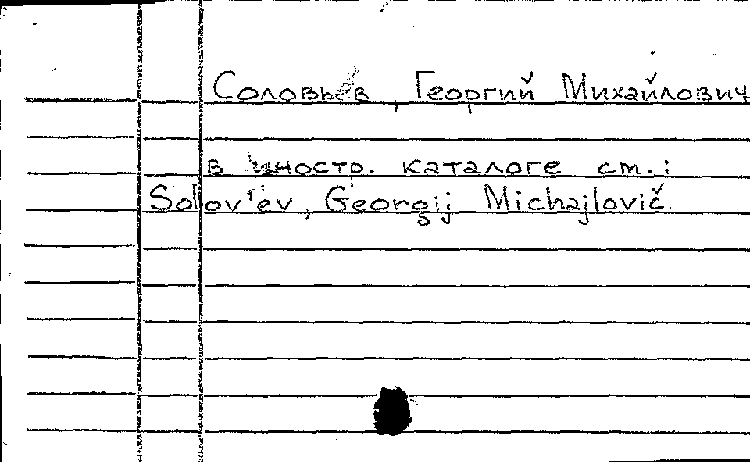 Соловьёв, Георгий Михайлович
в иностр. каталоге см.:
Solov'ev, Georgij Michajlovič